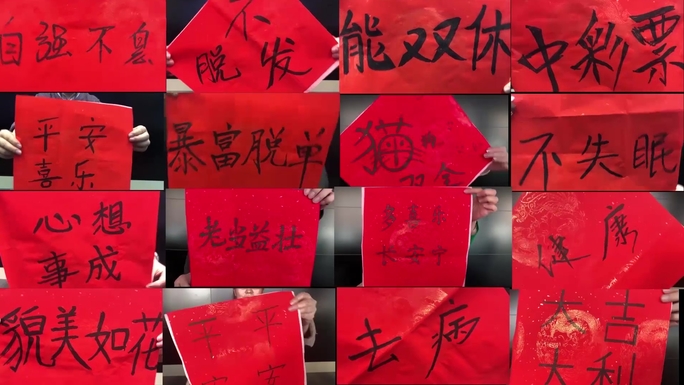 自强不息
不
脱发
能双休
中彩票
平安
喜乐
暴富脱单
猫狗
双全
不失眠
心想
事成
老当益壮
多喜乐
长安宁
健康
貌美如花
平
安
去病
大吉
大利